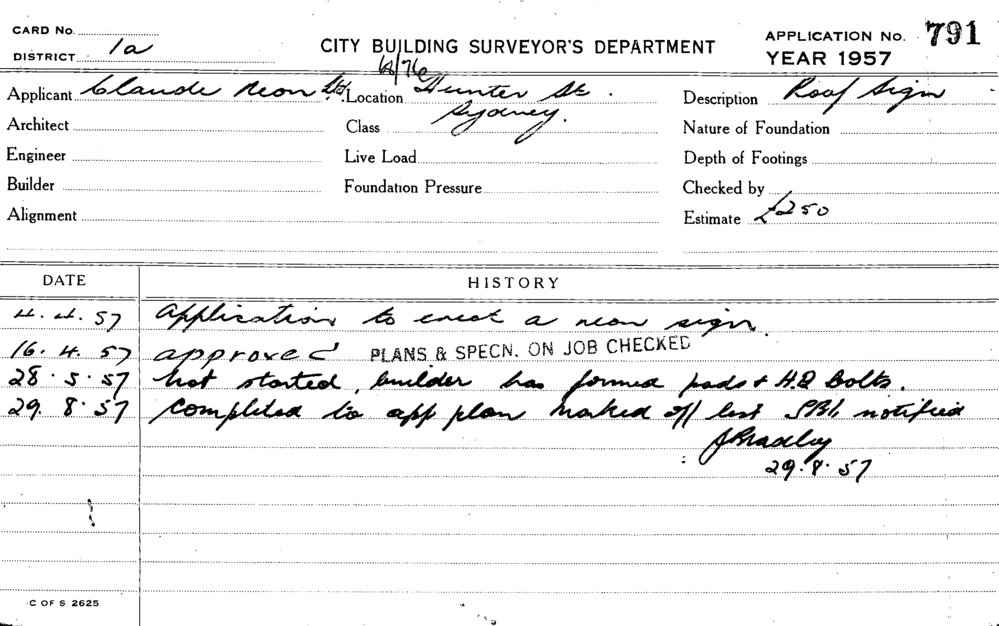 CARD No.
DISTRICT 1a
CITY BUILDING SURVEYOR'S DEPARTMENT
APPLICATION No. 791
YEAR 1957
Applicant Claude Neon Ltd. Location Hunter St. Description Roof Sign
Sydney.
Architect Class Nature of Foundation
Engineer Live Load Depth of Footings
Builder Foundation Pressure Checked by
Alignment Estimate £250
DATE HISTORY
4.4.57 Application to erect a neon sign.
16.4.57 approved PLANS & SPECN. ON JOB CHECKED
28.5.57 Not started, builder has formed pads & H.D Bolts.
29.8.57 Completed to app plan marked off list notified
J Bradley
29.8.57
C OF S 2625